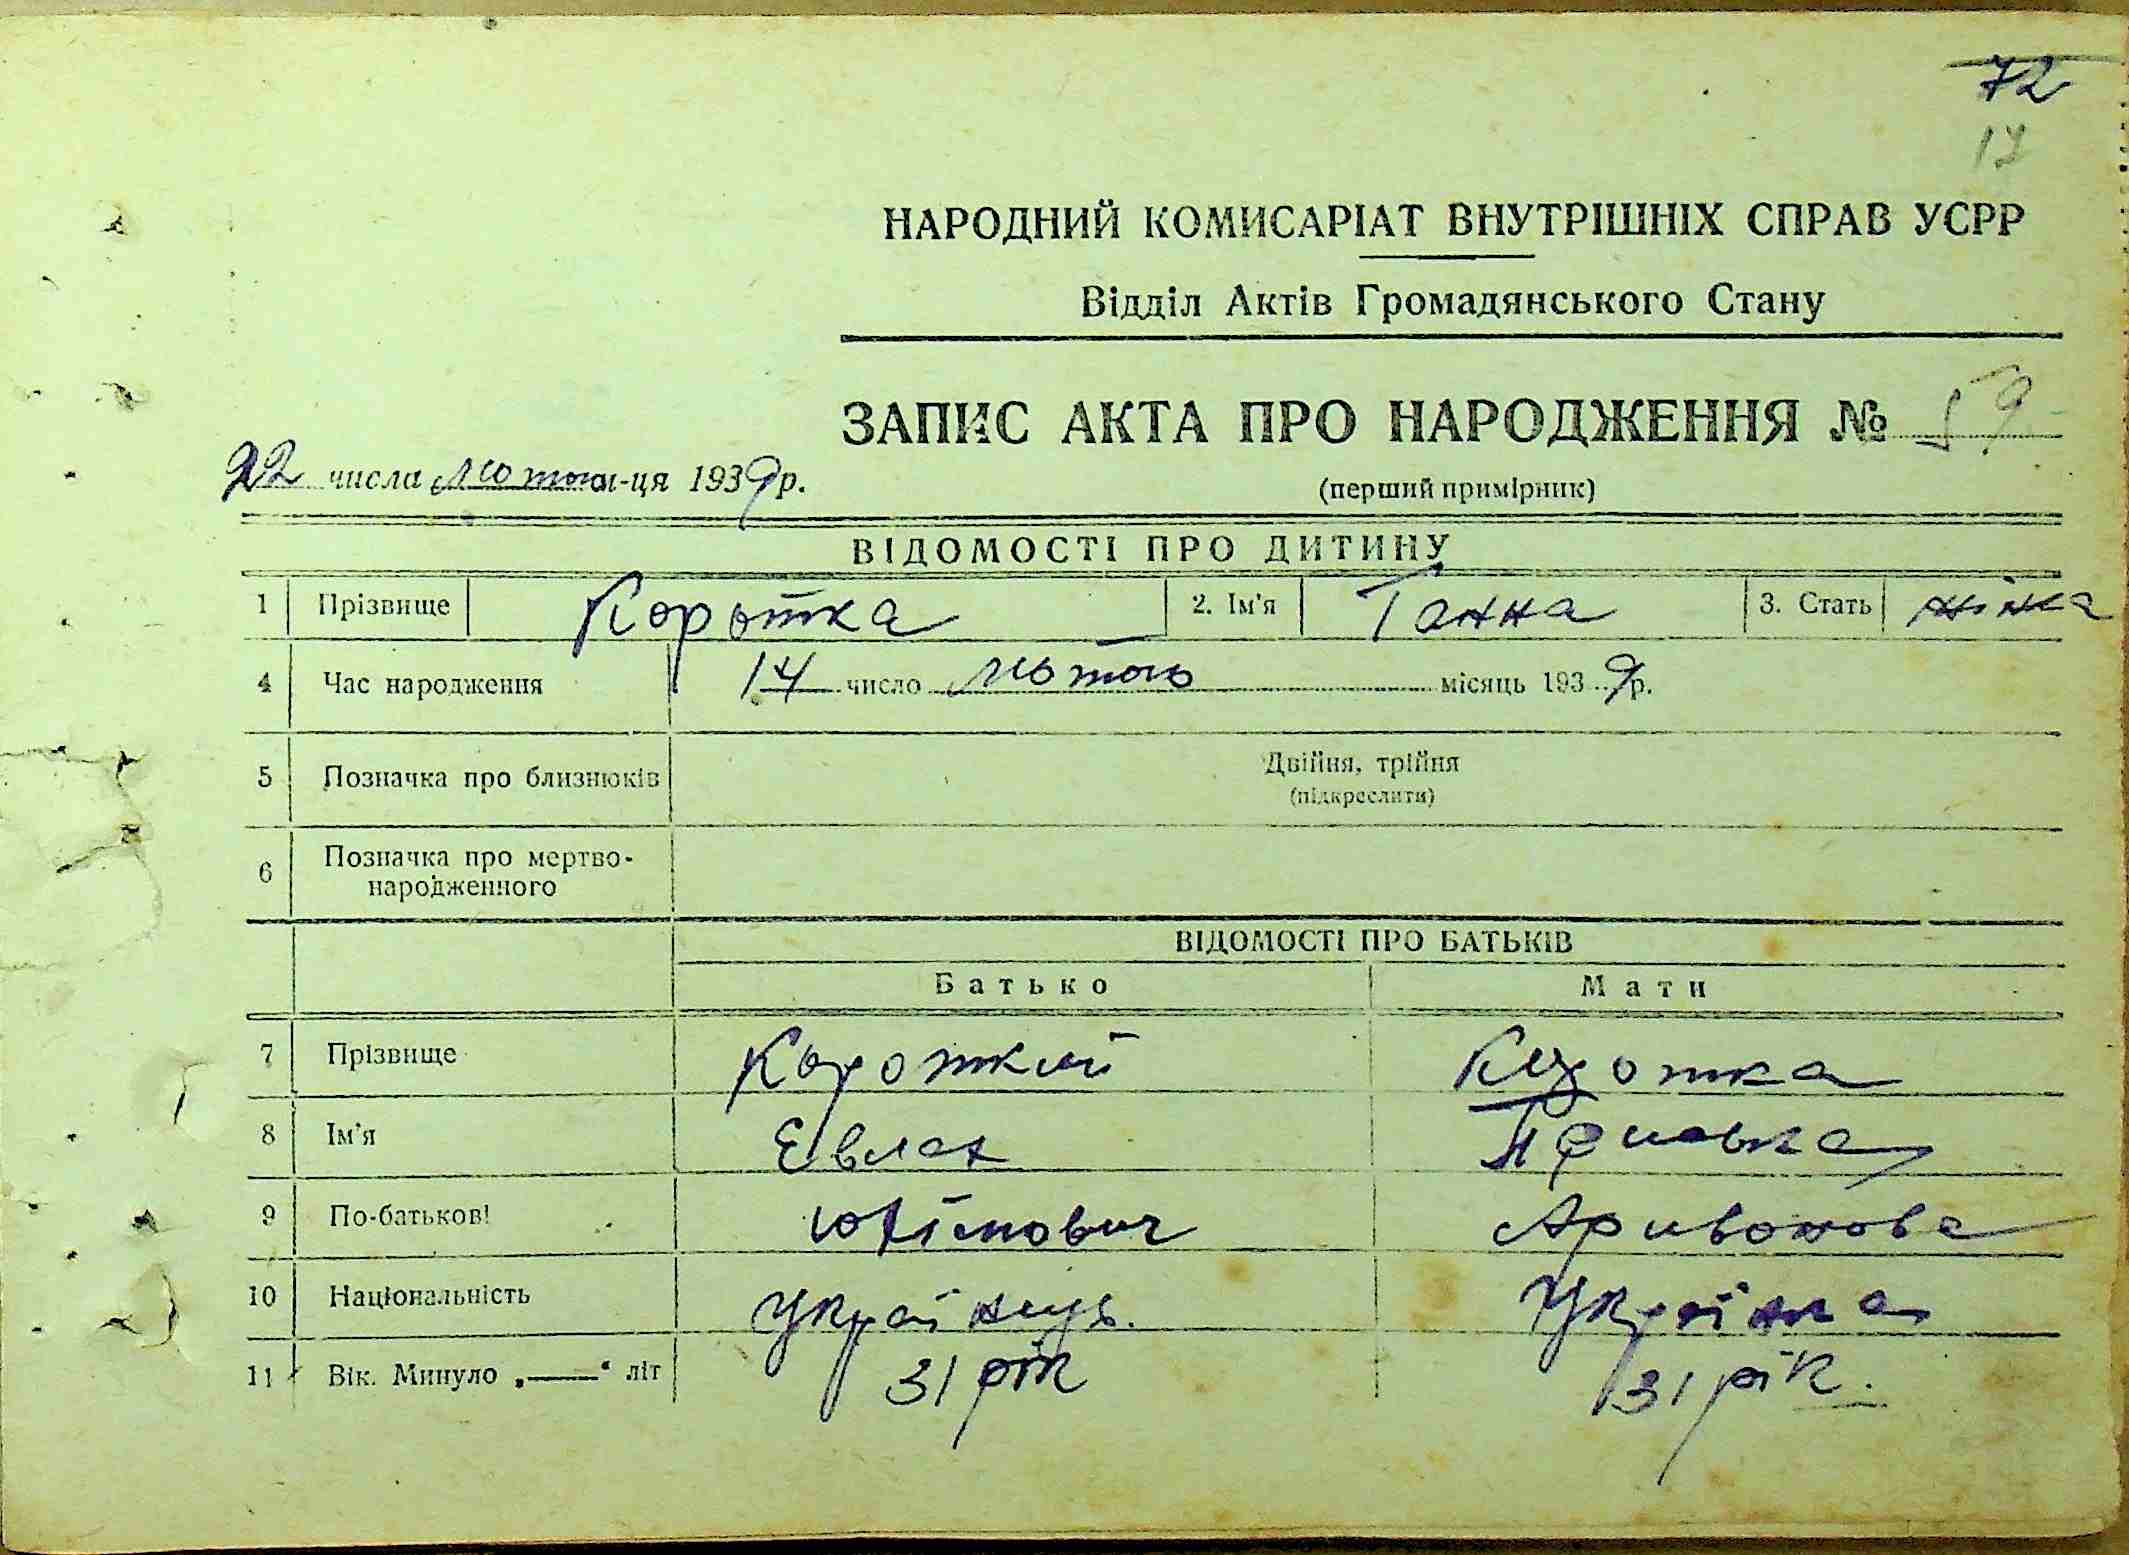 72
17
НАРОДНИЙ КОМИСАРІАТ ВНУТРІШНІХ СПРАВ УСРР
Відділ Актів Громадянського Стану
ЗАПИС АКТА ПРО НАРОДЖЕННЯ № 59
(перший примірник)
22 числа лютого м-ця 1939 р.
ВІДОМОСТІ ПРО ДИТИНУ
1 Прізвище Коротка 2. Ім'я Ганна 3. Стать жінка
4 Час народження 14 число лютого місяць 1939 р.
5 Позначка про близнюків Двійня, трійня
(підкреслити)
6 Позначка про мертво-
народженного
ВІДОМОСТІ ПРО БАТЬКІВ
Батько Мати
7 Прізвище Короткий Коротка
8 Ім'я Евлах
9 По-батькові Юхімович
10 Національність Українець. Українка
11 Вік. Минуло „—“ літ 31 рік 31 рік.